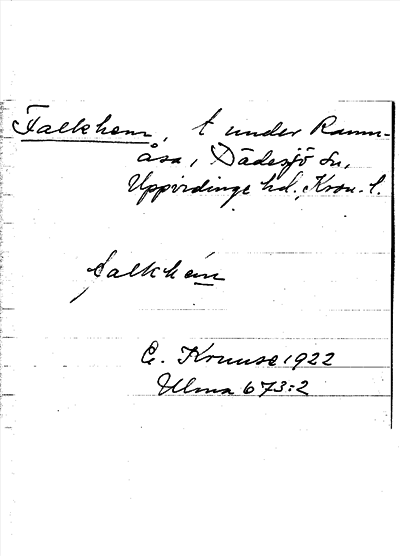 Falkhem, t under Ramn-
åsa, Dädesjö sn,
Uppvidinge hd., Kron. l.
falkhem
C. Kruuse 1922
Ulma 673:2